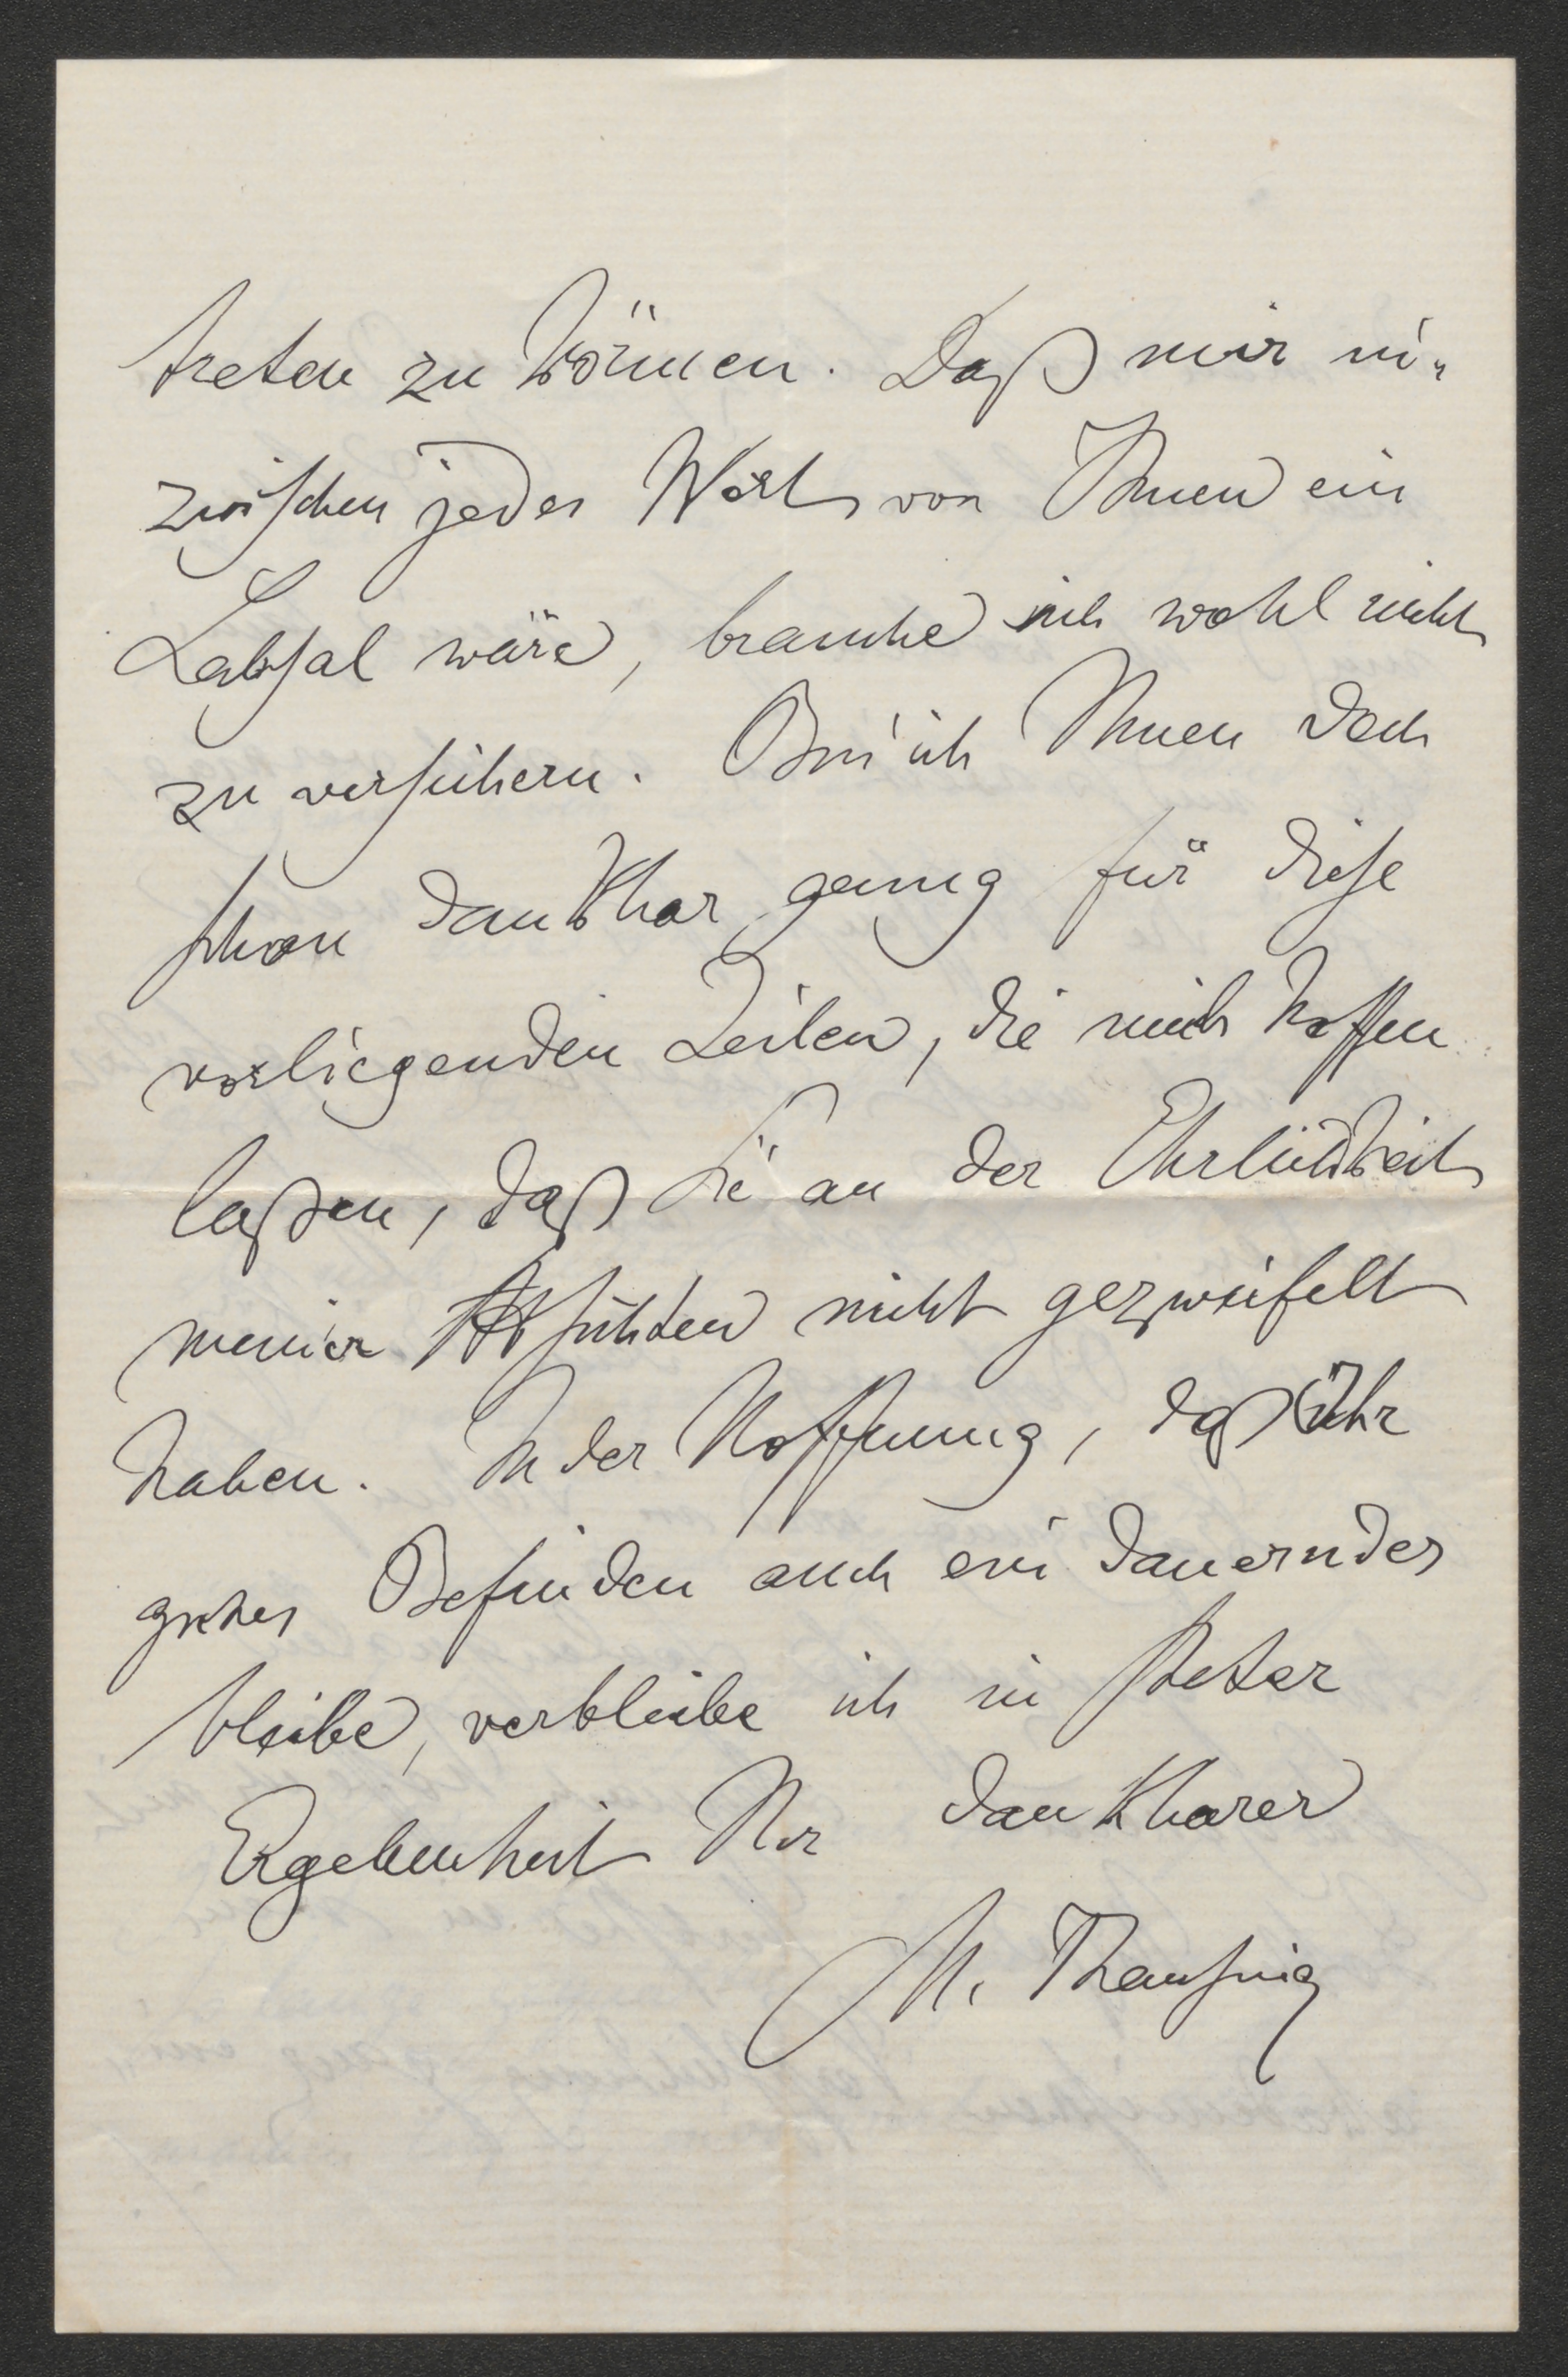 treten zu können. Daß mir in-
zwischen jedes Wort von Ihnen ein
Labsal wäre, brauche ich wohl nicht
zu versichern. Bin ich Ihnen doch
schon dankbar genug für diese
vorliegenden Zeilen, die mich hoffen
laßen, daß Sie an der Ehrlichkeit
meiner Absichten nicht gezweifelt
haben. In der Hoffnung, daß Ihr
gutes Befinden auch ein dauerndes
bleibe, verbleibe ich in steter
Ergebenheit Ihr dankbarer
M. Thausing